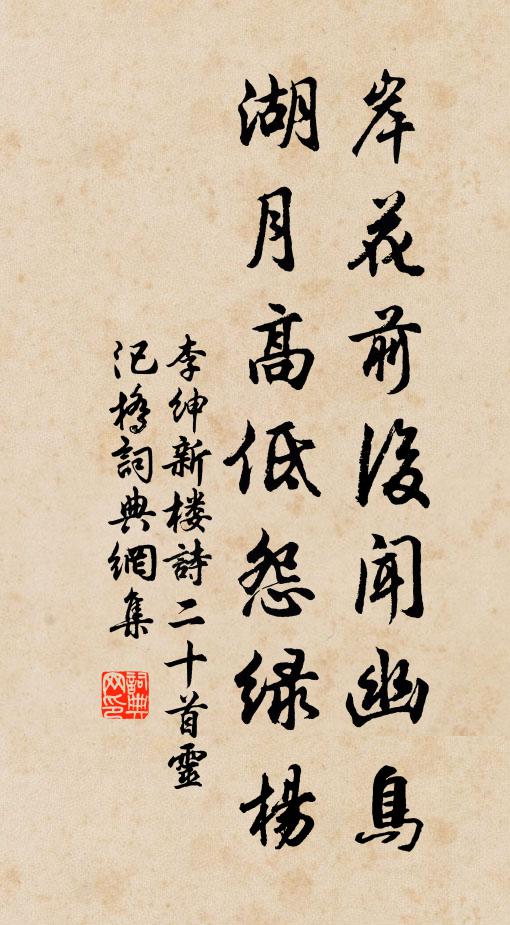 岸花前後聞幽鳥
湖月高低怨绿楊
李紳新楼詩二十首靈
汜橋詞典網集
詞典
网印